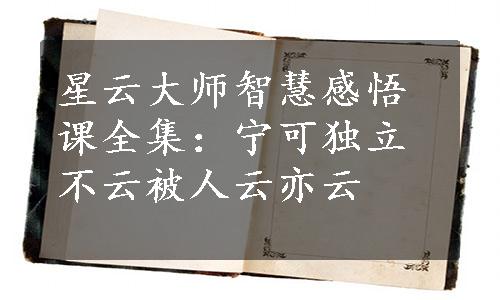 星云大师智慧感悟
课全集：宁可独立
不云被人云亦云